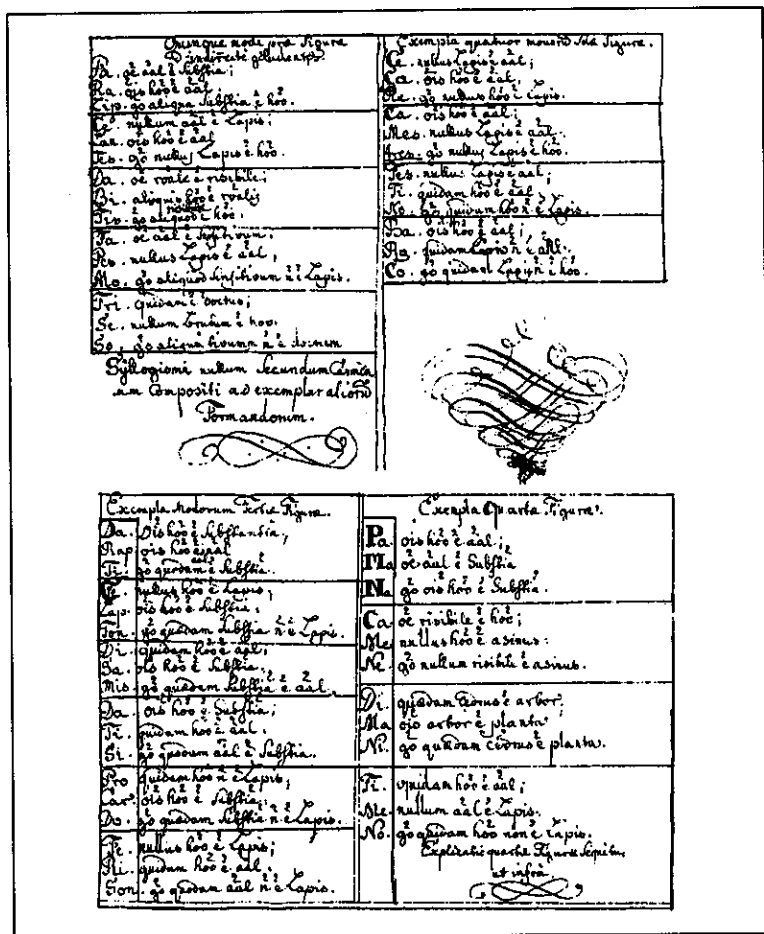 Quinque modi
Pa. oe aal e Substia;
Ra. ois hoo e aal
Tip. go aliqua Substia e hoo.
Ce. nullum aal e Lapis;
Lan. ois hoo e aal
Tes. go nullus Lapis e hoo.
Da. oe roale e risibile;
Bi. aliquis hoo e roalis
Tis. go aliquod e hoo.
Fa. oe aal e sensitivum.
Pes. nullus Lapis e aal,
Mo. go aliquod sensitivum n e Lapis.
Fri. quidam e doctus;
Se. nullum brutum e hoo.
So. go aliquod
Syllogismi nullum secundum
compositi ad exemplar aliorum
Formandorum.
Exempla quatuor modorum 2dae Figurae.
Ce. nullus Lapis e aal;
Ca. ois hoo e aal.
Re. go nullus hoo e Lapis.
Ca. ois hoo e aal;
Mes. nullus Lapis e aal.
tres. go nullus Lapis e hoo.
Fes. nullus Lapis e aal;
Ti. quidam hoo e aal.
No. go quidam hoo n e Lapis.
Ba. ois hoo e aal;
Ro. quidam Lapis n e aal.
Co. go quidam Lapis n e hoo.
Exempla Modorum Tertiae Figurae.
Da. Ois hoo e Substantia,
Rap. ois hoo e aal
Ti. go quodam aal e Substia.
Fe. nullus hoo e Lapis;
Lap. ois hoo e Substia.
Ton. go quadam Substia n e Lapis.
Di. quidam hoo e aal;
Sa. ois hoo e Substia.
Mis. go quadam Substia e aal.
Da. ois hoo e Substia;
Ti. quidam hoo e aal.
Si. go quodam aal e Substia.
Bro quidam hoo n e Lapis;
Car. ois hoo e Substia;
Do. go quadam Substia n e Lapis.
Fe. nullus hoo e Lapis;
Ri. quidam hoo e aal.
Son. go quodam aal n e Lapis.
Exempla Quarta Figurae.
Pa. ois hoo e aal;
Ma oe aal e Substia
Na go ois hoo e Substia.
Ca. oe risibile e hoo;
Me nullus hoo e asinus.
Ne. go nullum risibile e asinus.
Di. quadam cedrus e arbor;
Ma ois arbor e planta
Ni. go quadam cedrus e planta.
Fi. quidam hoo e aal;
Me. nullum aal e Lapis.
No. go quidam hoo non e Lapis.
Explicatio quartae Figurae
ut infra